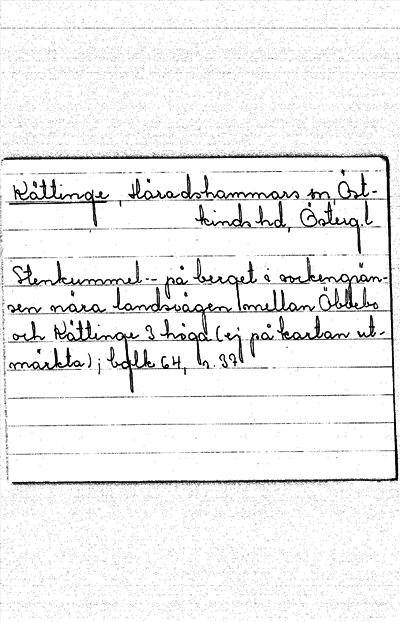 Kättinge, Häradshammars sn, Öst-
kinds hd, Östergl
Stenkummel -- på berget i sockengrän-
sen nära landsvägen mellan Öbblebo
och Kättinge 3 höga (ej på kartan ut-
märkta); bglk 64, n. 37